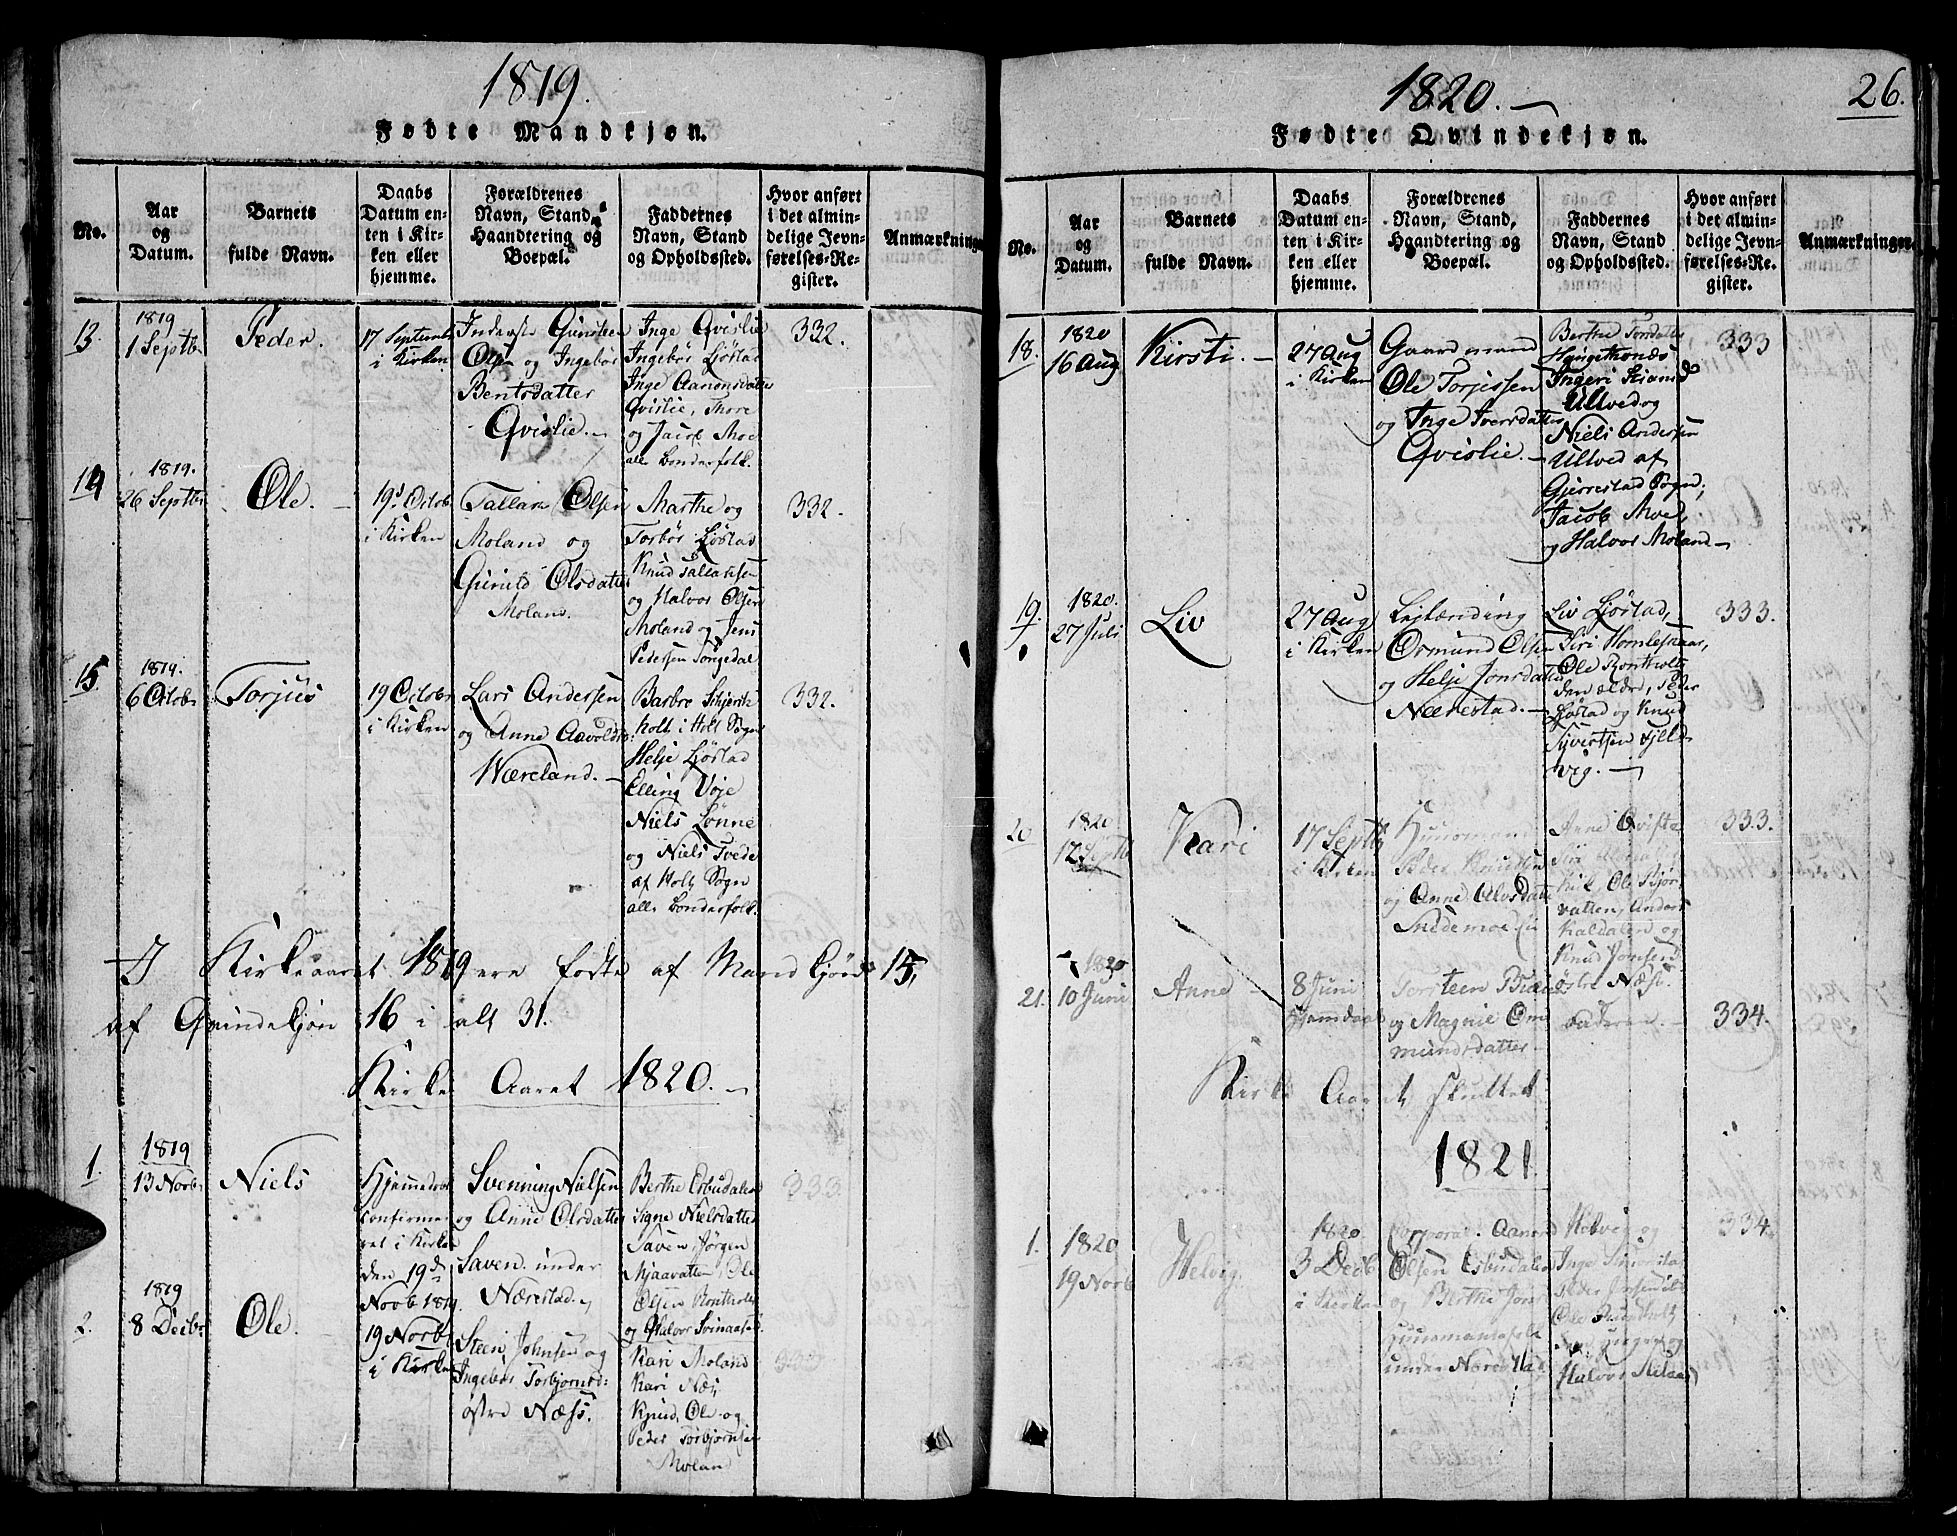 1819.
Fødte Mandkjøn.
No.
Aar
og
Datum.
Barnets
fulde Navn.
Daabs
Datum en-
ten i Kir-
ken eller
hjemme.
Forældrenes
Navn, Stand,
Haandtering og
Boepæl.
Faddernes
Navn, Stand
og Opholdssted.
Hvor anført
i det almin-
delige Jevn-
førelses-Re-
gister.
Anmærkninger
13.
1819
1 Septbr
Peder.
17 Septembr
i Kirken
Gunsteen
Olsen og Ingebor
Bentsdatter
Qvislie.
Inge Qvislie
Ingebor Ljøstad
Inge Aanonsdatter
Qvislie, Thore
og Jacob Moe
alle Bonderfolk.
332.
14
1819.
26 Septbr
Ole.
19d Octob
i Kirken
Tallak Olsen
Moland og
Gunild Olsdatter
Moland.
Marthe og
Torbor Ljøstad
Knud Tallaksen
og Halvor Olsen
Moland og Jens
Pedersen Songedal
332.
15.
1819.
6 Octobr
Torjus
19 Octobr
i Kirken
Lars Andersen
og Anne Aavoldsd:
Wæreland.
Barbro
holt i Holt Sogn
Helje Ljøstad
Elling Voje
Niels Lønne
og Niels Tvede
af Holt Sogn
alle Bonderfolk.
332.
I Kirkeaaret 1819 ere fødte af Mandkjøn 15,
af Qvindekjøn 16 i alt 31.
Kirke Aaret 1820.
1.
1819
13 Novbr
Niels
Hjemmedøbt
confirme-
ret i Kirken
den 19de
Novb 1819.
Svenning Nielsen
og Anne Olsdatter
Saven under
Nærestad
Berthe Esbudalen
Signe Nielsdatter
Saven, Jørgen
Mjaavatten, Ole
Olsen Rontholt
og Halvor Svinaasen
333.
2.
1819
8 Decbr
Ole.
19 Novb
i Kirken
Steen Johnsen og
Ingebor Torbjornsd:
østre Næss.
Kari Moland
Kari Næs,
Knud, Ole og
Peder Torbjornsen
Moland
1820.
26.
Fødte Qvindekjøn.
No.
Aar
og
Datum.
Barnets
fulde Navn.
Daabs
Datum en-
ten i Kir-
ken eller
hjemme.
Forældrenes
Navn, Stand,
Haandtering og
Boepæl.
Faddernes
Navn, Stand
og Opholdssted.
Hvor anført
i det almin-
delige Jevn-
førelses-Re-
gister.
Anmærkninger.
18.
1820
16 Aug
Kirsti.
27 Aug
i Kirken
Gaardmand
Ole Torjessen
og Inge Iversdatter
Qvislie.
Berthe Tordatter
Ingeri
Ullved og
Niels Andersen
Ullved af
Gjerrestad Sogn,
Jacob Moe,
og Halvor Moland
333
19.
1820.
27 Juli
Liv
27 Aug
i Kirken
Lejlænding
Ormund Olsen
og Helje Jonsdatter
Nærestad.
Liv Ljøstad,
Siri Homleskaar,
Ole Rontholt
den ældre, Peder
Ljøstad og Knud
Sjvertsen Fjeld-
vig.
333.
20
1820
12 Septb
Kari
17 Septb
i Kirken
Huusmand
Peder Knudsen
og Anne Alvsdatter
Anne Qvifte
Ole Kjør-
vatten, Anders
Kaldalen og
Knud Jonsen
østre Næss.
333.
21.
1820
10 Juni
Anne
8 Juni
hjemdøbt
Torsteen
og Magnil Om-
mundsdatter
334.
Kirke Aaret sluttet
1821
1.
1820
19 Novb
Helvig.
1820.
3 Decb
i Kirken
Corporal Aanon
Olsen Esbudalen
og Berthe
Huusmandsfolk
under Nærestad
Helvig og
Inge
Ole Rontholt
den yngre og
Halvor
334